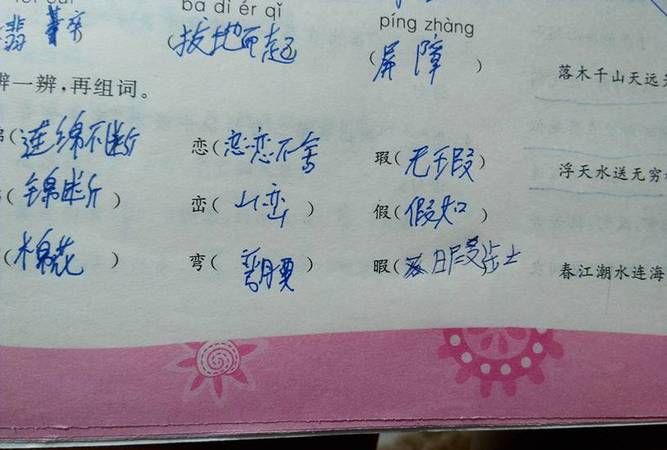 bá dì ér qǐ píng zhàng
翡翠 (拔地而起 (屏障)
落木千山天远
辨一辨,再组词。
(连绵不断 恋(恋恋不舍 瑕(无瑕)
浮天水送无穷
(锦断) 峦(山峦) 假(假如)
(棉花 弯(弯腰) 暇(
春江潮水连海